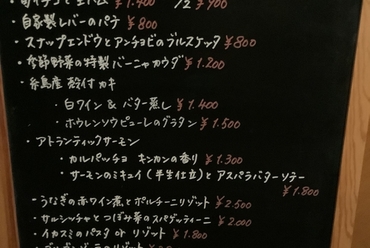 ¥1.400 1/2 ¥900
・自家製レバーのパテ ¥800
・スナップエンドウとアンチョビのブルスケッタ ¥800
・季節野菜の特製バーニャカウダ ¥1.200
・糸島産 殻付カキ
・白ワイン & バター蒸し ¥1.400
・ホウレンソウピューレのグラタン ¥1.500
・アトランティックサーモン
・カルパッチョ キンカンの香り ¥1.300
・サーモンのミキュイ(半生仕立)とアスパラバターソテー
¥1.800
・うなぎの赤ワイン煮とポルチーニリゾット ¥2.500
・サルシッチャとつぼみ菜のスパゲッティーニ ¥2.000
・イカスミのパスタ or リゾット ¥1.800